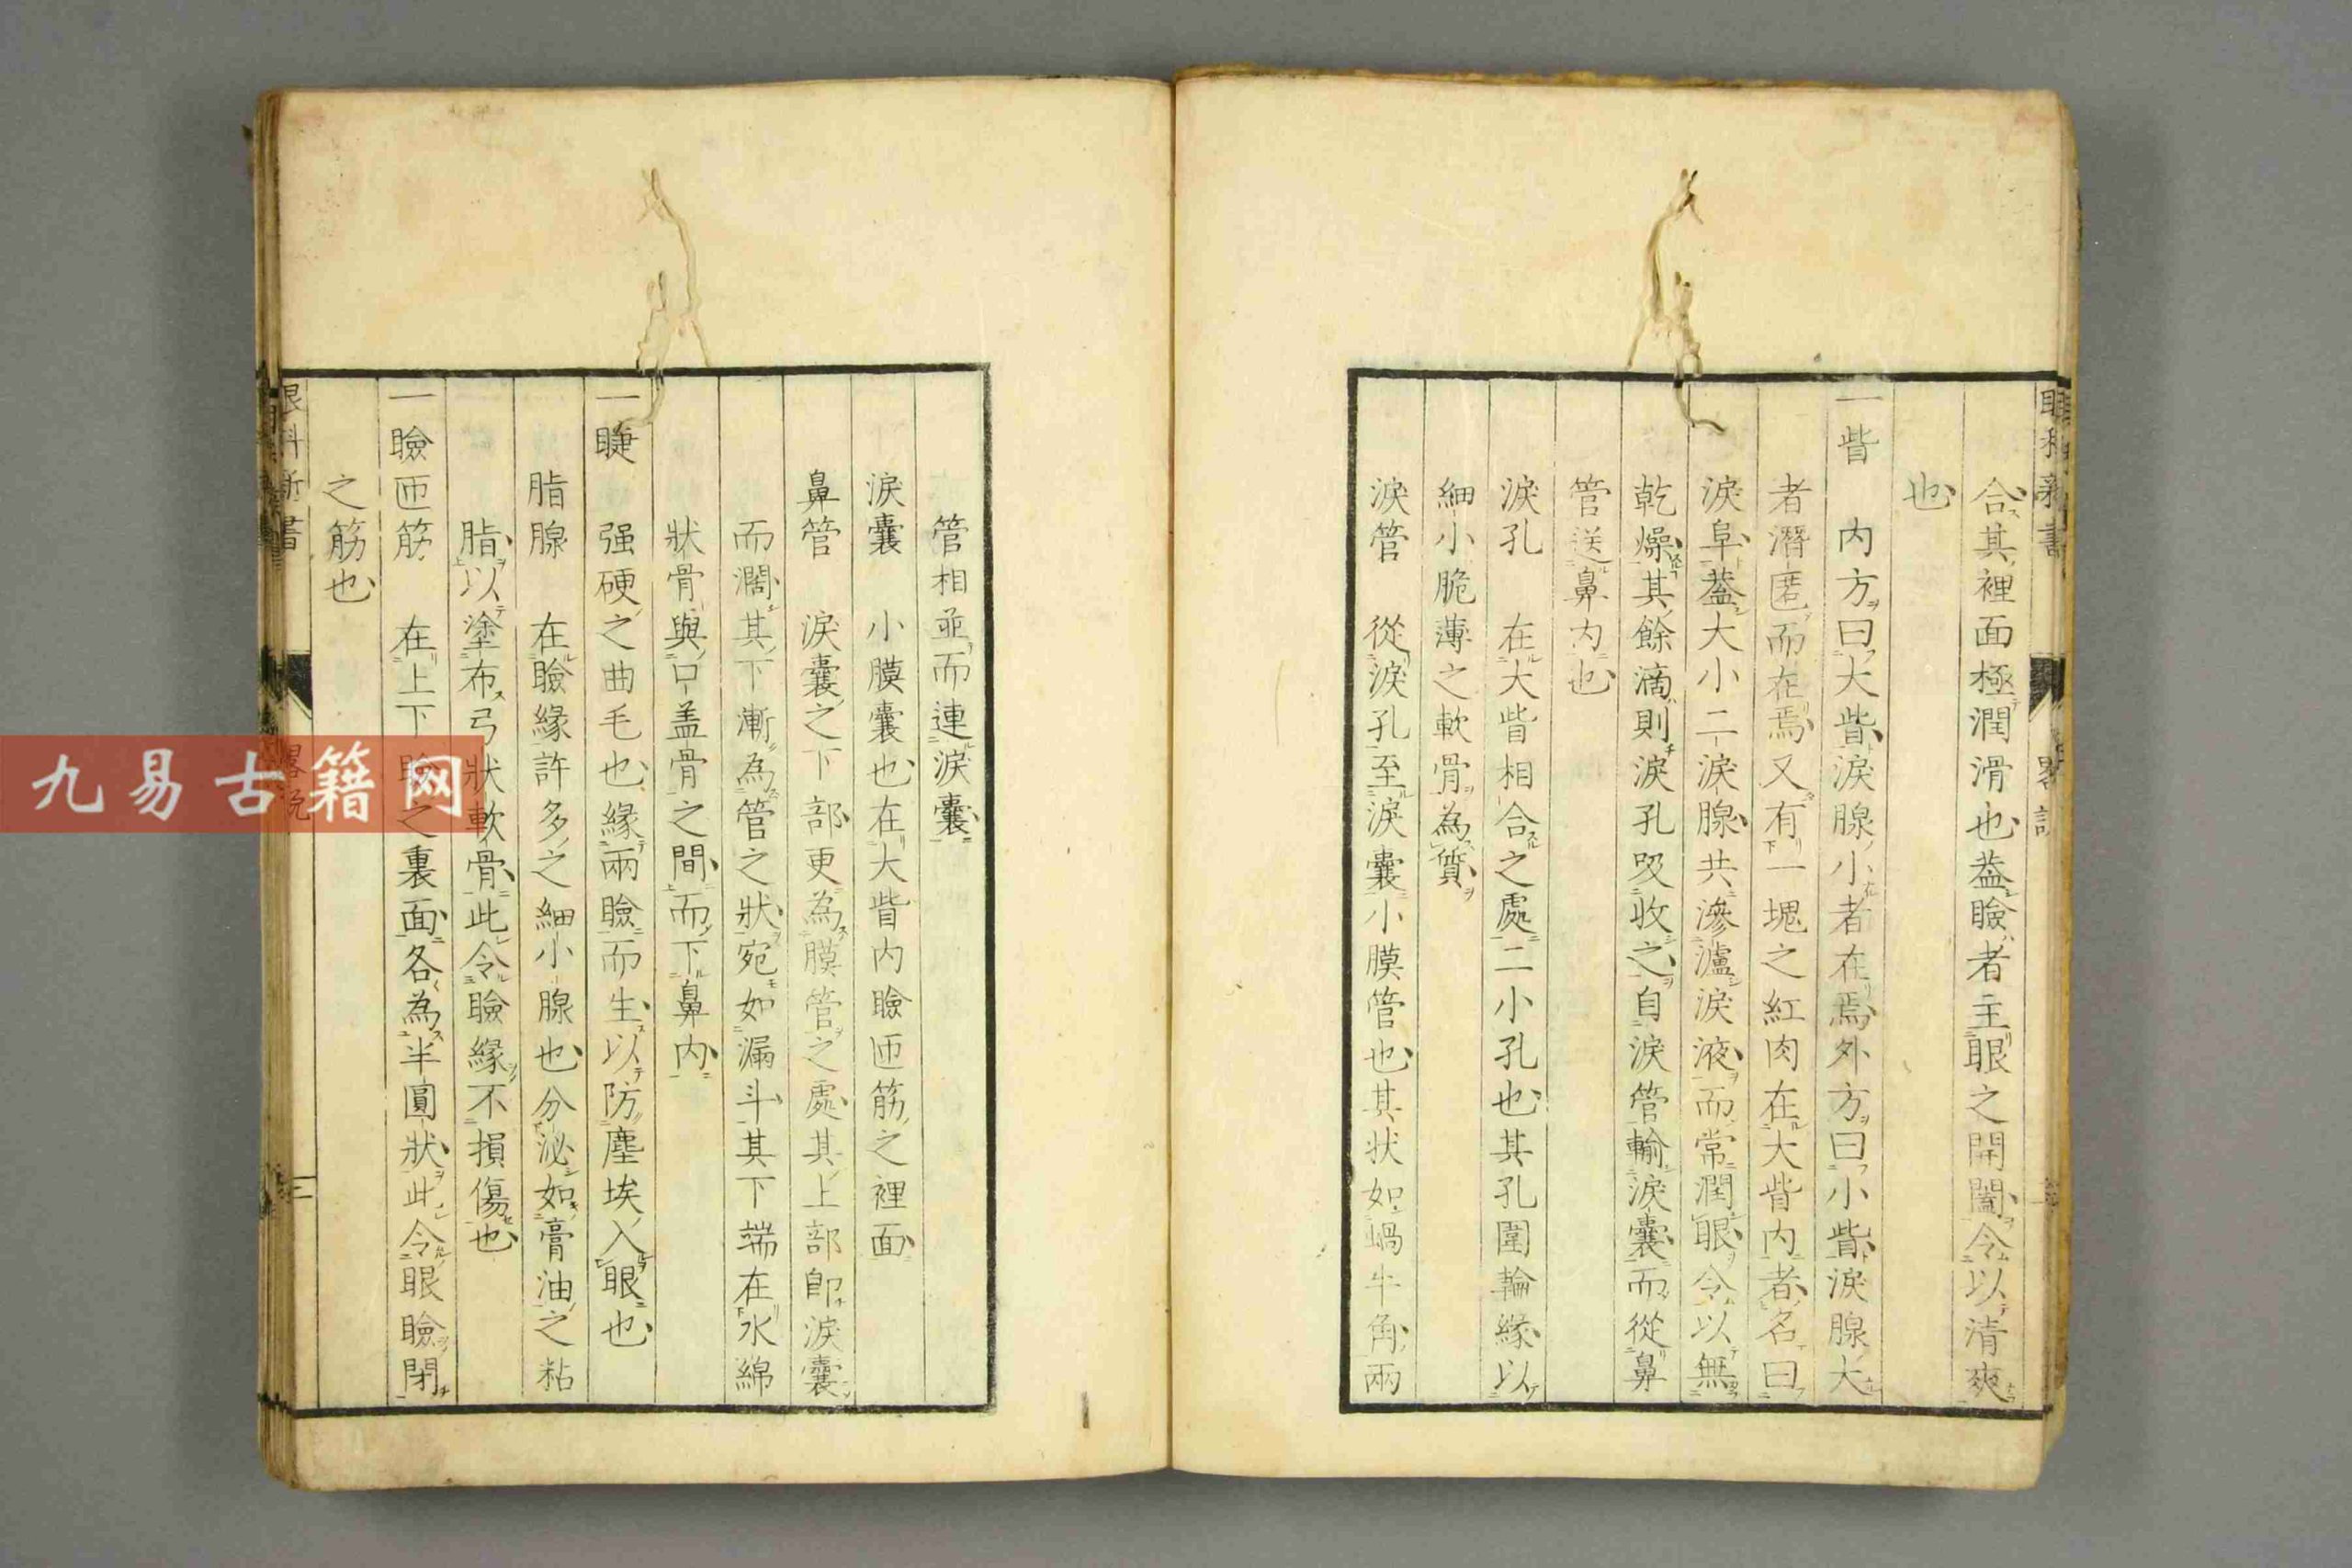 合其裡面極潤滑也蓋瞼者主眼之開闔令以清爽
也
一眥　內方曰大眥淚腺小者在焉外方曰小眥淚腺大
者潛匿而在焉又有一塊之紅肉在大眥內者名曰
淚阜蓋大小二淚腺共滲瀘淚液而常潤眼令以無
乾燥其餘滴則淚孔吸收之自淚管輸淚囊而從鼻
管送鼻內也
淚孔　在大眥相合之處二小孔也其孔圍輪緣以
細小脆薄之軟骨為質
淚管　從淚孔至淚囊小膜管也其状如蝸牛角兩
管相並而連淚囊
淚囊　小膜囊也在大眥內瞼匝筋之裡面
鼻管　淚囊之下部更為膜管之處其上部即淚囊
而濶其下漸為管之狀宛如漏斗其下端在水綿
狀骨與口蓋骨之間而下鼻內
一睫　强硬之曲毛也緣兩瞼而生以防塵埃入眼也
脂腺　在瞼緣許多之細小腺也分泌如膏油之粘
脂以塗布弓狀軟骨此令瞼緣不損傷也
一瞼匝筋　在上下瞼之裏面各為半圓狀此令眼瞼閉
之筋也
眼科新書
畧説
三
九易古籍网